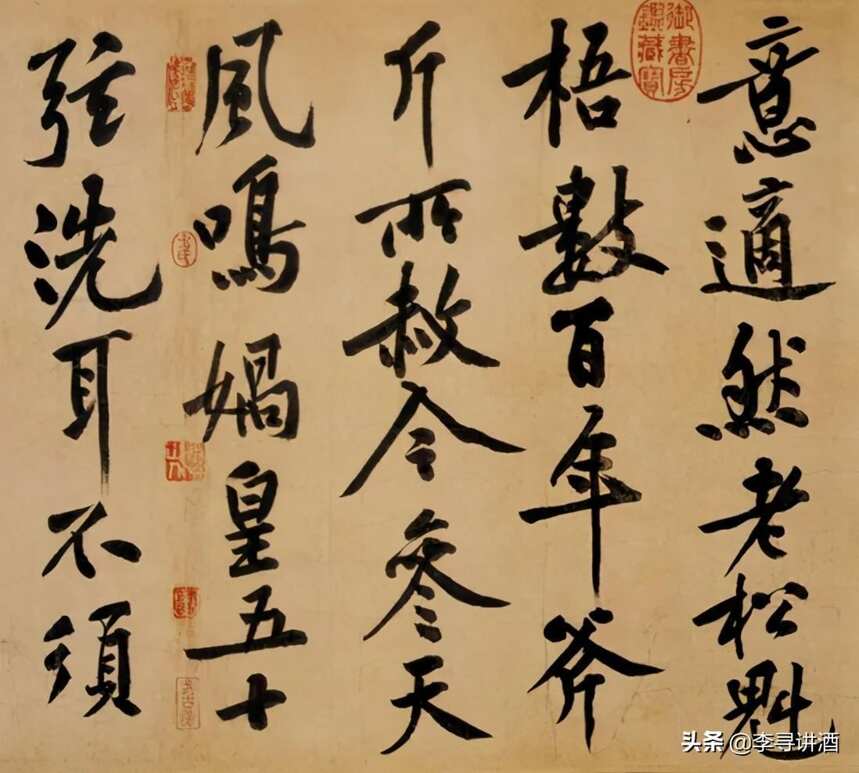 御書房
鑑藏寶
意適然老松魁
梧數百年斧
斤所赦今參天
風鳴媧皇五十
弦洗耳不須
头条 @李寻讲酒